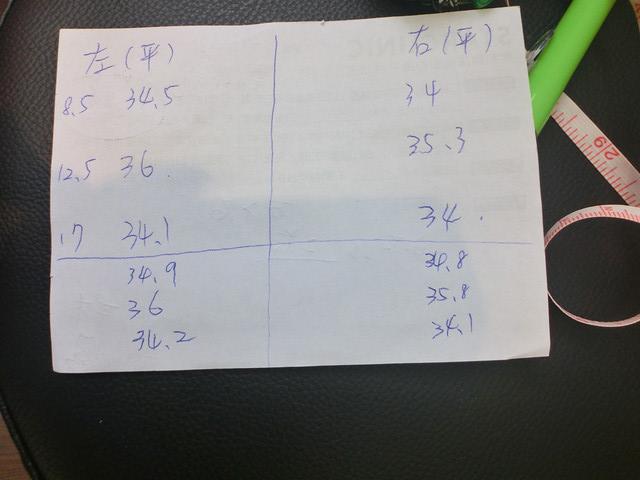 左(平) 右(平)
8.5 34.5 34
12.5 36. 35.3
17 34.1 34.
34.9 34.8
36 35.8
34.2 34.1
29